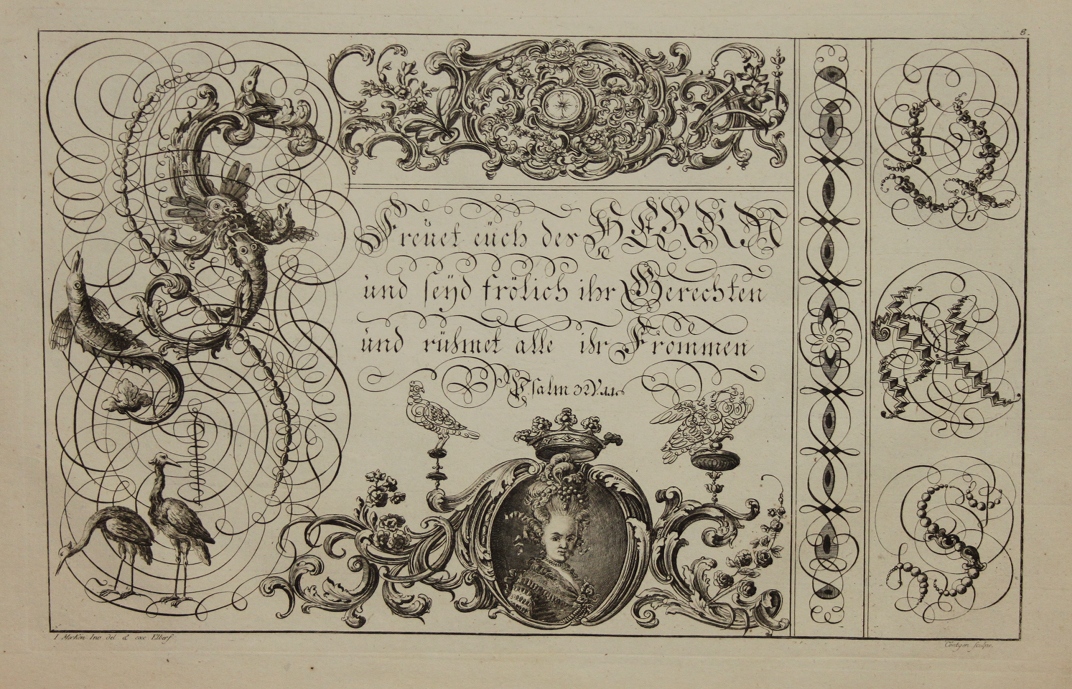 6.
Freüet eüch des HERRN
und seÿd frölich ihr Gerechten
und rühmet alle ihr Frommen
Psalm 32 V. 11.
S
Q
R
S
inv del & exc Elberf
sculps.